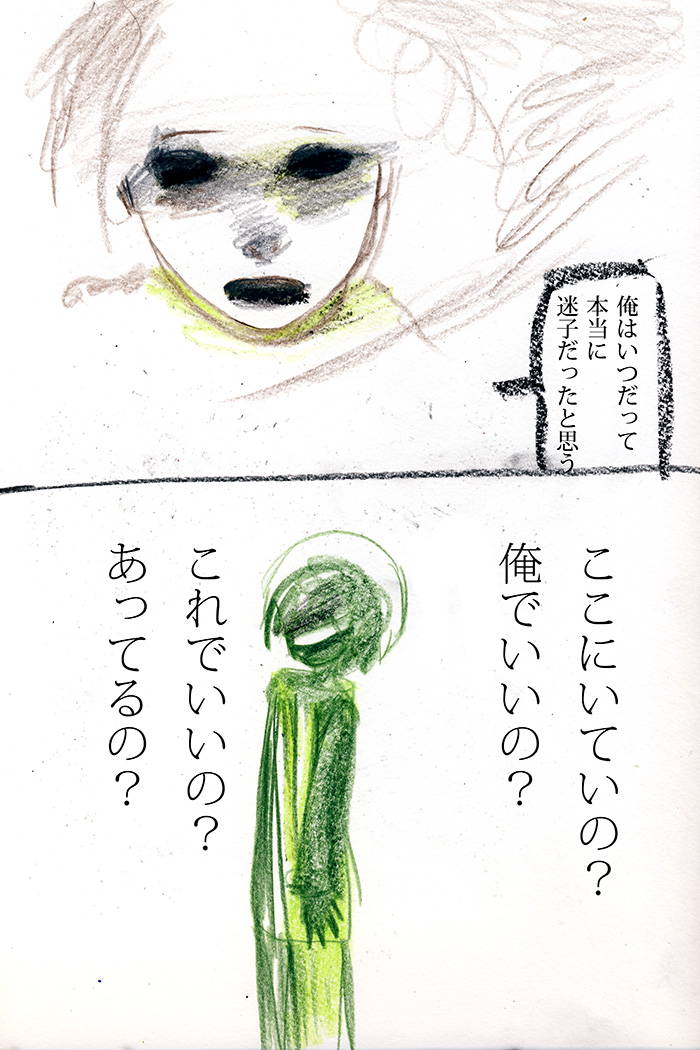 俺はいつだって
本当に
迷子だったと思う
ここにいていの？
俺でいいの？
これでいいの？
あってるの？